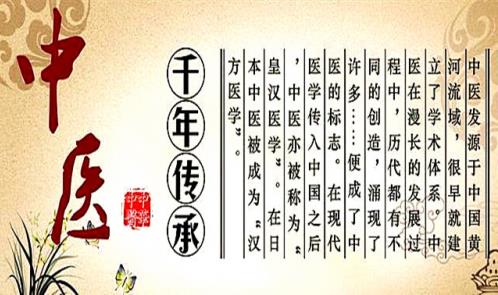 中医
千年传承
中医发源于中国黄
河流域，很早就建
立了学术体系。中
医在漫长的发展过
程中，历代都有不
同的创造，涌现了
许多……便成了中
医的标志。在现代
医学传入中国之后
，中医亦被称为“
皇汉医学”。在日
本中医被成为“汉
方医学”。
中華
中醫